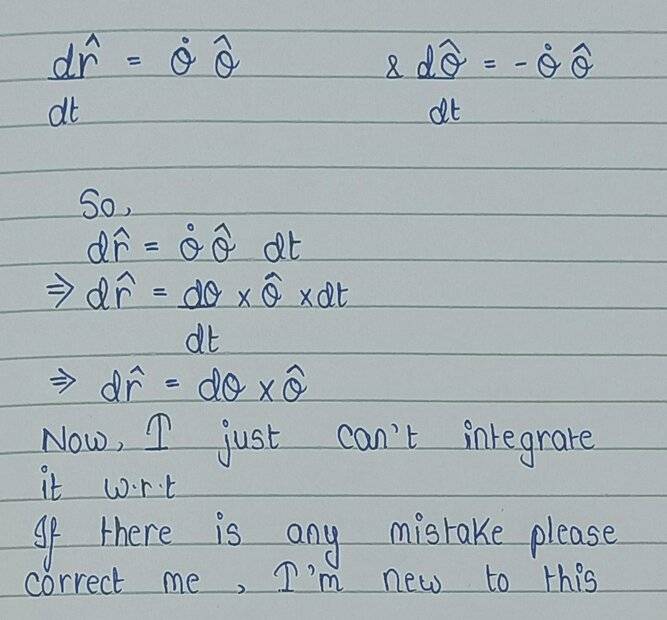 dr̂ = θ̇ θ̂ & dθ̂ = - θ̇ θ̂
dt dt
So,
dr̂ = θ̇ θ̂ dt
⇒ dr̂ = dθ × θ̂ × dt
dt
⇒ dr̂ = dθ × θ̂
Now, I just can't integrate
it w.r.t
If there is any mistake please
correct me, I'm new to this